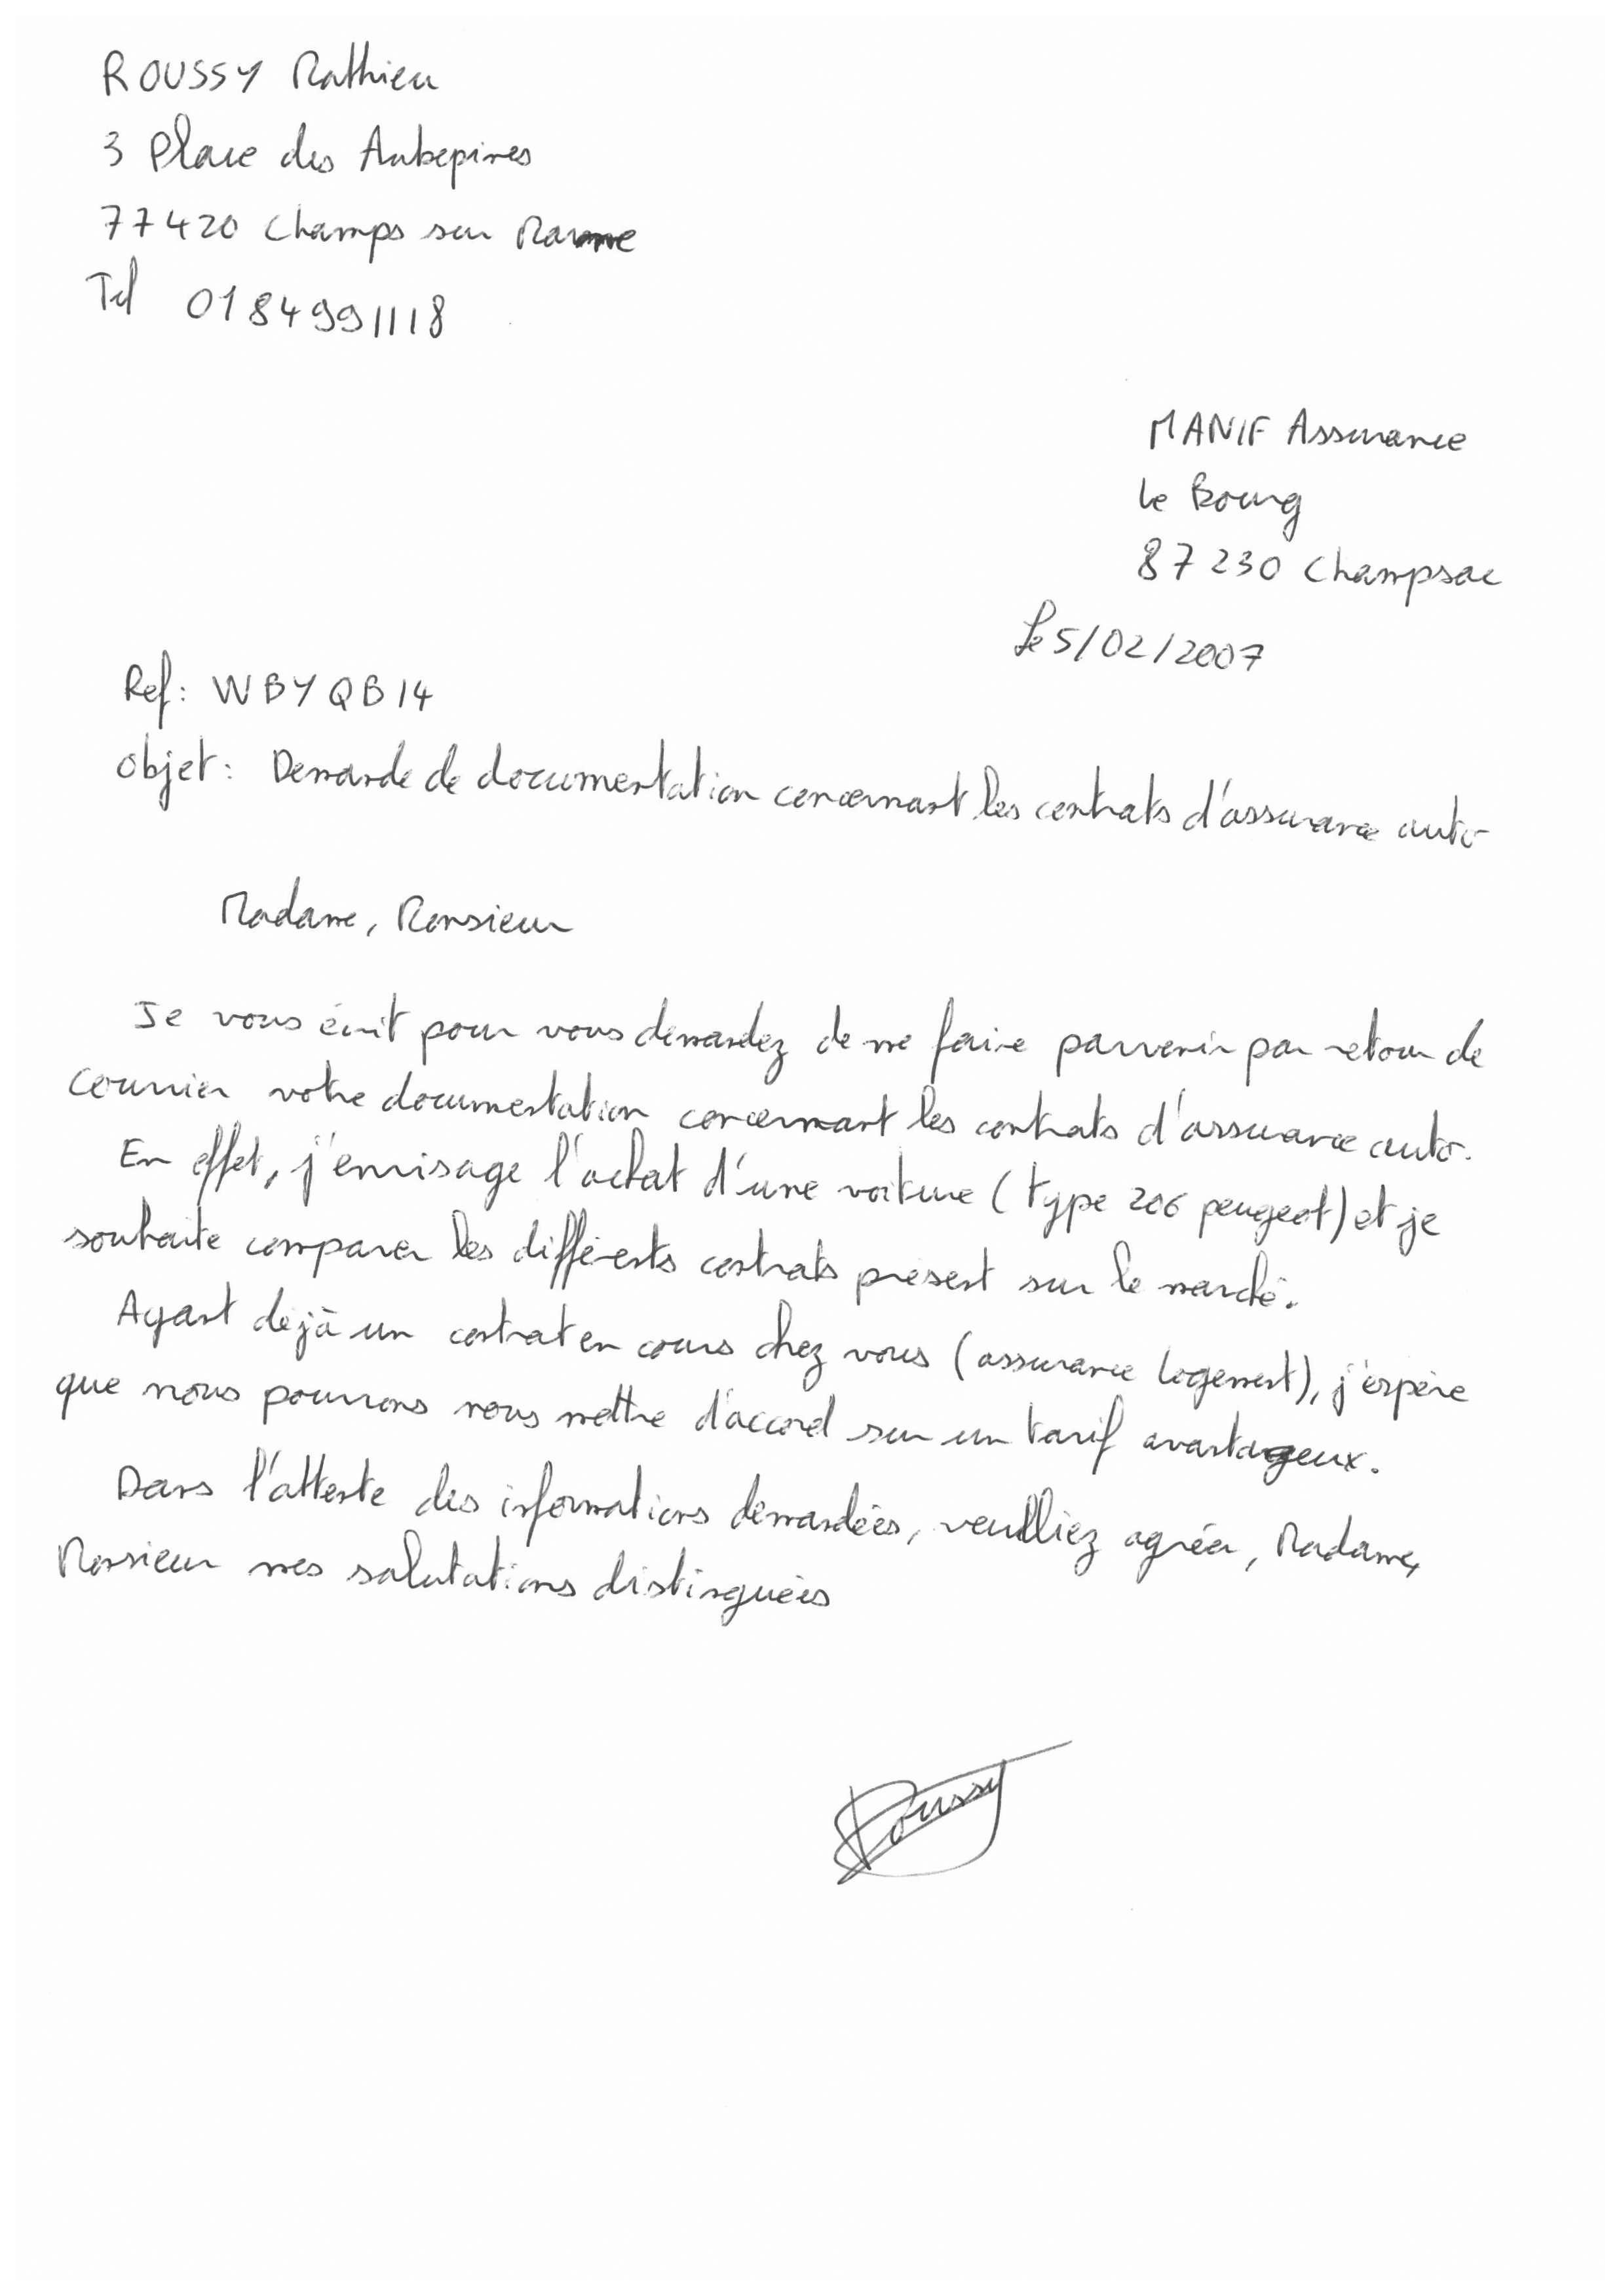 ROUSSY Mathieu
3 Place des Aubepines
77420 Champs sur Marne
Tel 0184991118
MANIF Assurance
Le Bourg
87230 Champsac
Le 5/02/2007
Ref: WBYQB14
Objet: Demande de documentation concernant les contrats d'assurance auto
Madame, Monsieur
Je vous écrit pour vous demandez de me faire parvenir par retour de
courrier votre documentation concernant les contrats d'assurance auto.
En effet, j'envisage l'achat d'une voiture (type 206 peugeot) et je
souhaite comparer les différents contrats présent sur le marché.
Ayant déjà un contrat en cours chez vous (assurance logement), j'espère
que nous pourrons nous mettre d'accord sur un tarif avantageux.
Dans l'attente des informations demandées, veuilliez agréer, Madame,
Monsieur mes salutations distinguées
Roussy